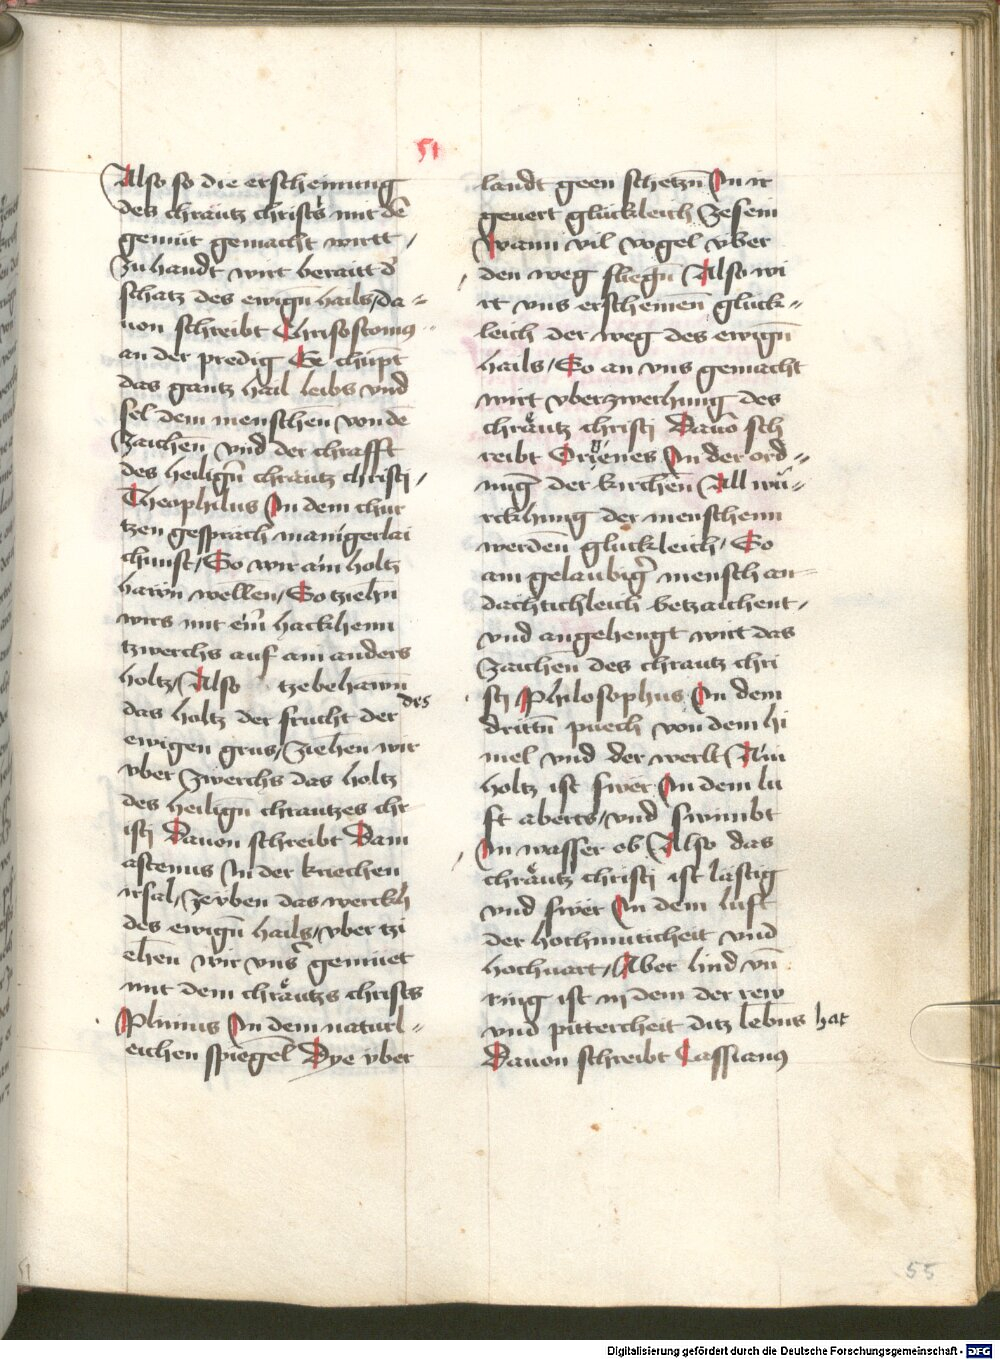 51
Also so die erscheinung
des chräutz christs mit dē
gemüt gemacht wirtt /
Zu handt wirt beraitt d̓
schatz des ewign̄ hails / da =
uon schreibt Chrisostomus
an der predig Es chūpt
das gantz hail leibs vnd
sel dem menschen̄ von dē
Zaichen̄ vnd der chrafft
des heilign̄ chräutz christj /
Theophilus In dem chur
tzen gespräch manigerlai
chunst / So wir ain holtz
hawn̄ wellen / So ziehn̄
wirs mit eim̄ hackhenn
tzwerchs auf ain anders
holtz / Also tzebehawn̄
das holtz der frucht der des
ewigen grus / ziehen̄ wir
vber zwerchs das holtz
des heilign̄ chrautzes chr
istj Dauon schreibt Dam
astenus In der kriechen
irsal / Ze vben das werckh
des ewign̄ hails / vber tzi
ehen̄ wir vns̓ gemüet
mit dem chräutzs christs
Plinius In dem naturl=
eichen spiegel̄ Dye vber
landt geen schetzn̄ In ir
geuert glückleich Zesein
Wann vil vogel vber
den weg fliegn̄ Also wi
rt vns erscheinen̄ glück=
leich der weg des ewign̄
hails / So an vns gemacht
wirt vberzwerhung des
chräutz christj Dauō sch
reibt Origenes In der ord=
nūg der kirchen̄ All wü=
rckhung der menschenn
werden̄ glückleich / So
ain gelaubig̓ mensch an
dächtichleich betzaichent /
vnd angehengt wirt das
Zaichen̄ des chrautz chri
stj Philosophus In dem
drittn̄ puech von dem hi
mel vnd der werlt Ain
holtz ist swer In dem lu
ft aberts / vnd swimbt
In wasser ob Also das
chräutz christj ist lästig
vnd swër In dem luft
der hochmuticheit vnd
hochuart / Aber lind vn̄
ring ist in dem der rew
vnd pittercheit ditz lebn̄s hat
Dauon schreibt Cassianus
55
Digitalisierung gefördert durch die Deutsche Forschungsgemeinschaft - DFG